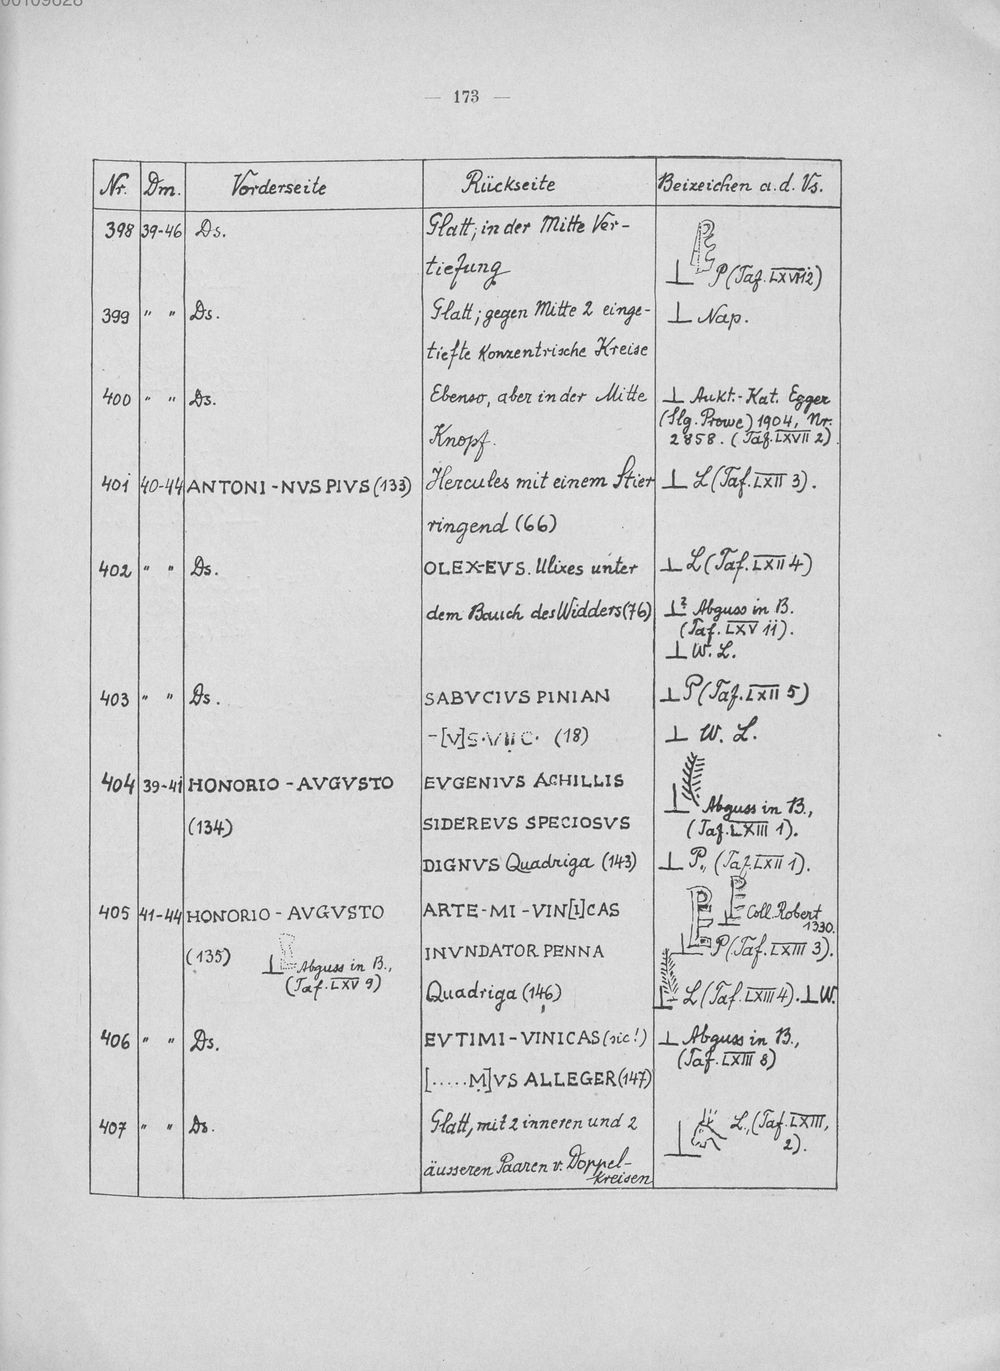 — 173 —
Nr. Dm. Vorderseite Rückseite Beizeichen a. d. Vs.
398 39-46 Ds. Glatt; in der Mitte Ver-
tiefung ⊥ P (Taf. LXVII 12)
399 " " Ds. Glatt; gegen Mitte 2 einge- ⊥ Nap.
tiefte konzentrische Kreise
400 " " Ds. Ebenso, aber in der Mitte ⊥ Aukt.-Kat. Egger
(Slg. Prowe) 1904, Nr.
Knopf. 2858. (Taf. LXVII 2)
401 40-44 ANTONI-NVS PIVS (133) Hercules mit einem Stier ⊥ L (Taf. LXII 3).
ringend (66)
402 " " Ds. OLEX-EVS. Ulixes unter ⊥ L (Taf. LXII 4)
dem Bauch des Widders (76) ⊥? Abguss in B.
(Taf. LXV 11).
⊥ W. L.
403 " " Ds. SABVCIVS PINIAN ⊥ P (Taf. LXII 5)
-[V]S·V II C· (18) ⊥ W. L.
404 39-41 HONORIO - AVGVSTO EVGENIVS ACHILLIS
(134) SIDEREVS SPECIOSVS ⊥ Abguss in B.,
(Taf. LXIII 1).
DIGNVS Quadriga (143) ⊥ P., (Taf. LXII 1).
405 41-44 HONORIO - AVGVSTO ARTE-MI-VIN[I]CAS ⊥ E Coll. Robert
1330.
(135) ⊥ Abguss in B., INVNDATOR PENNA ⊥ P (Taf. LXIII 3).
(Taf. LXV 9)
Quadriga (146) ⊥ L (Taf. LXIII 4). ⊥ W.
406 " " Ds. EVTIMI-VINICAS (sic!) ⊥ Abguss in B.,
(Taf. LXIII 8)
[.....M]VS ALLEGER (147)
407 " " Ds. Glatt, mit 2 inneren und 2 ⊥ L., (Taf. LXIII,
2).
äusseren Paaren v. Doppel-
kreisen